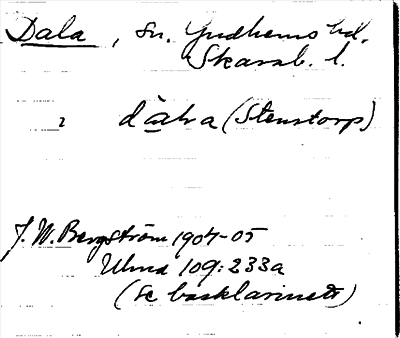 Dala, sn. Gudhems hd.
Skarab. l.
dala (Stenstorp)
J. W. Bergström 1904-05
Ulma 109:233a
(se basklarinett)